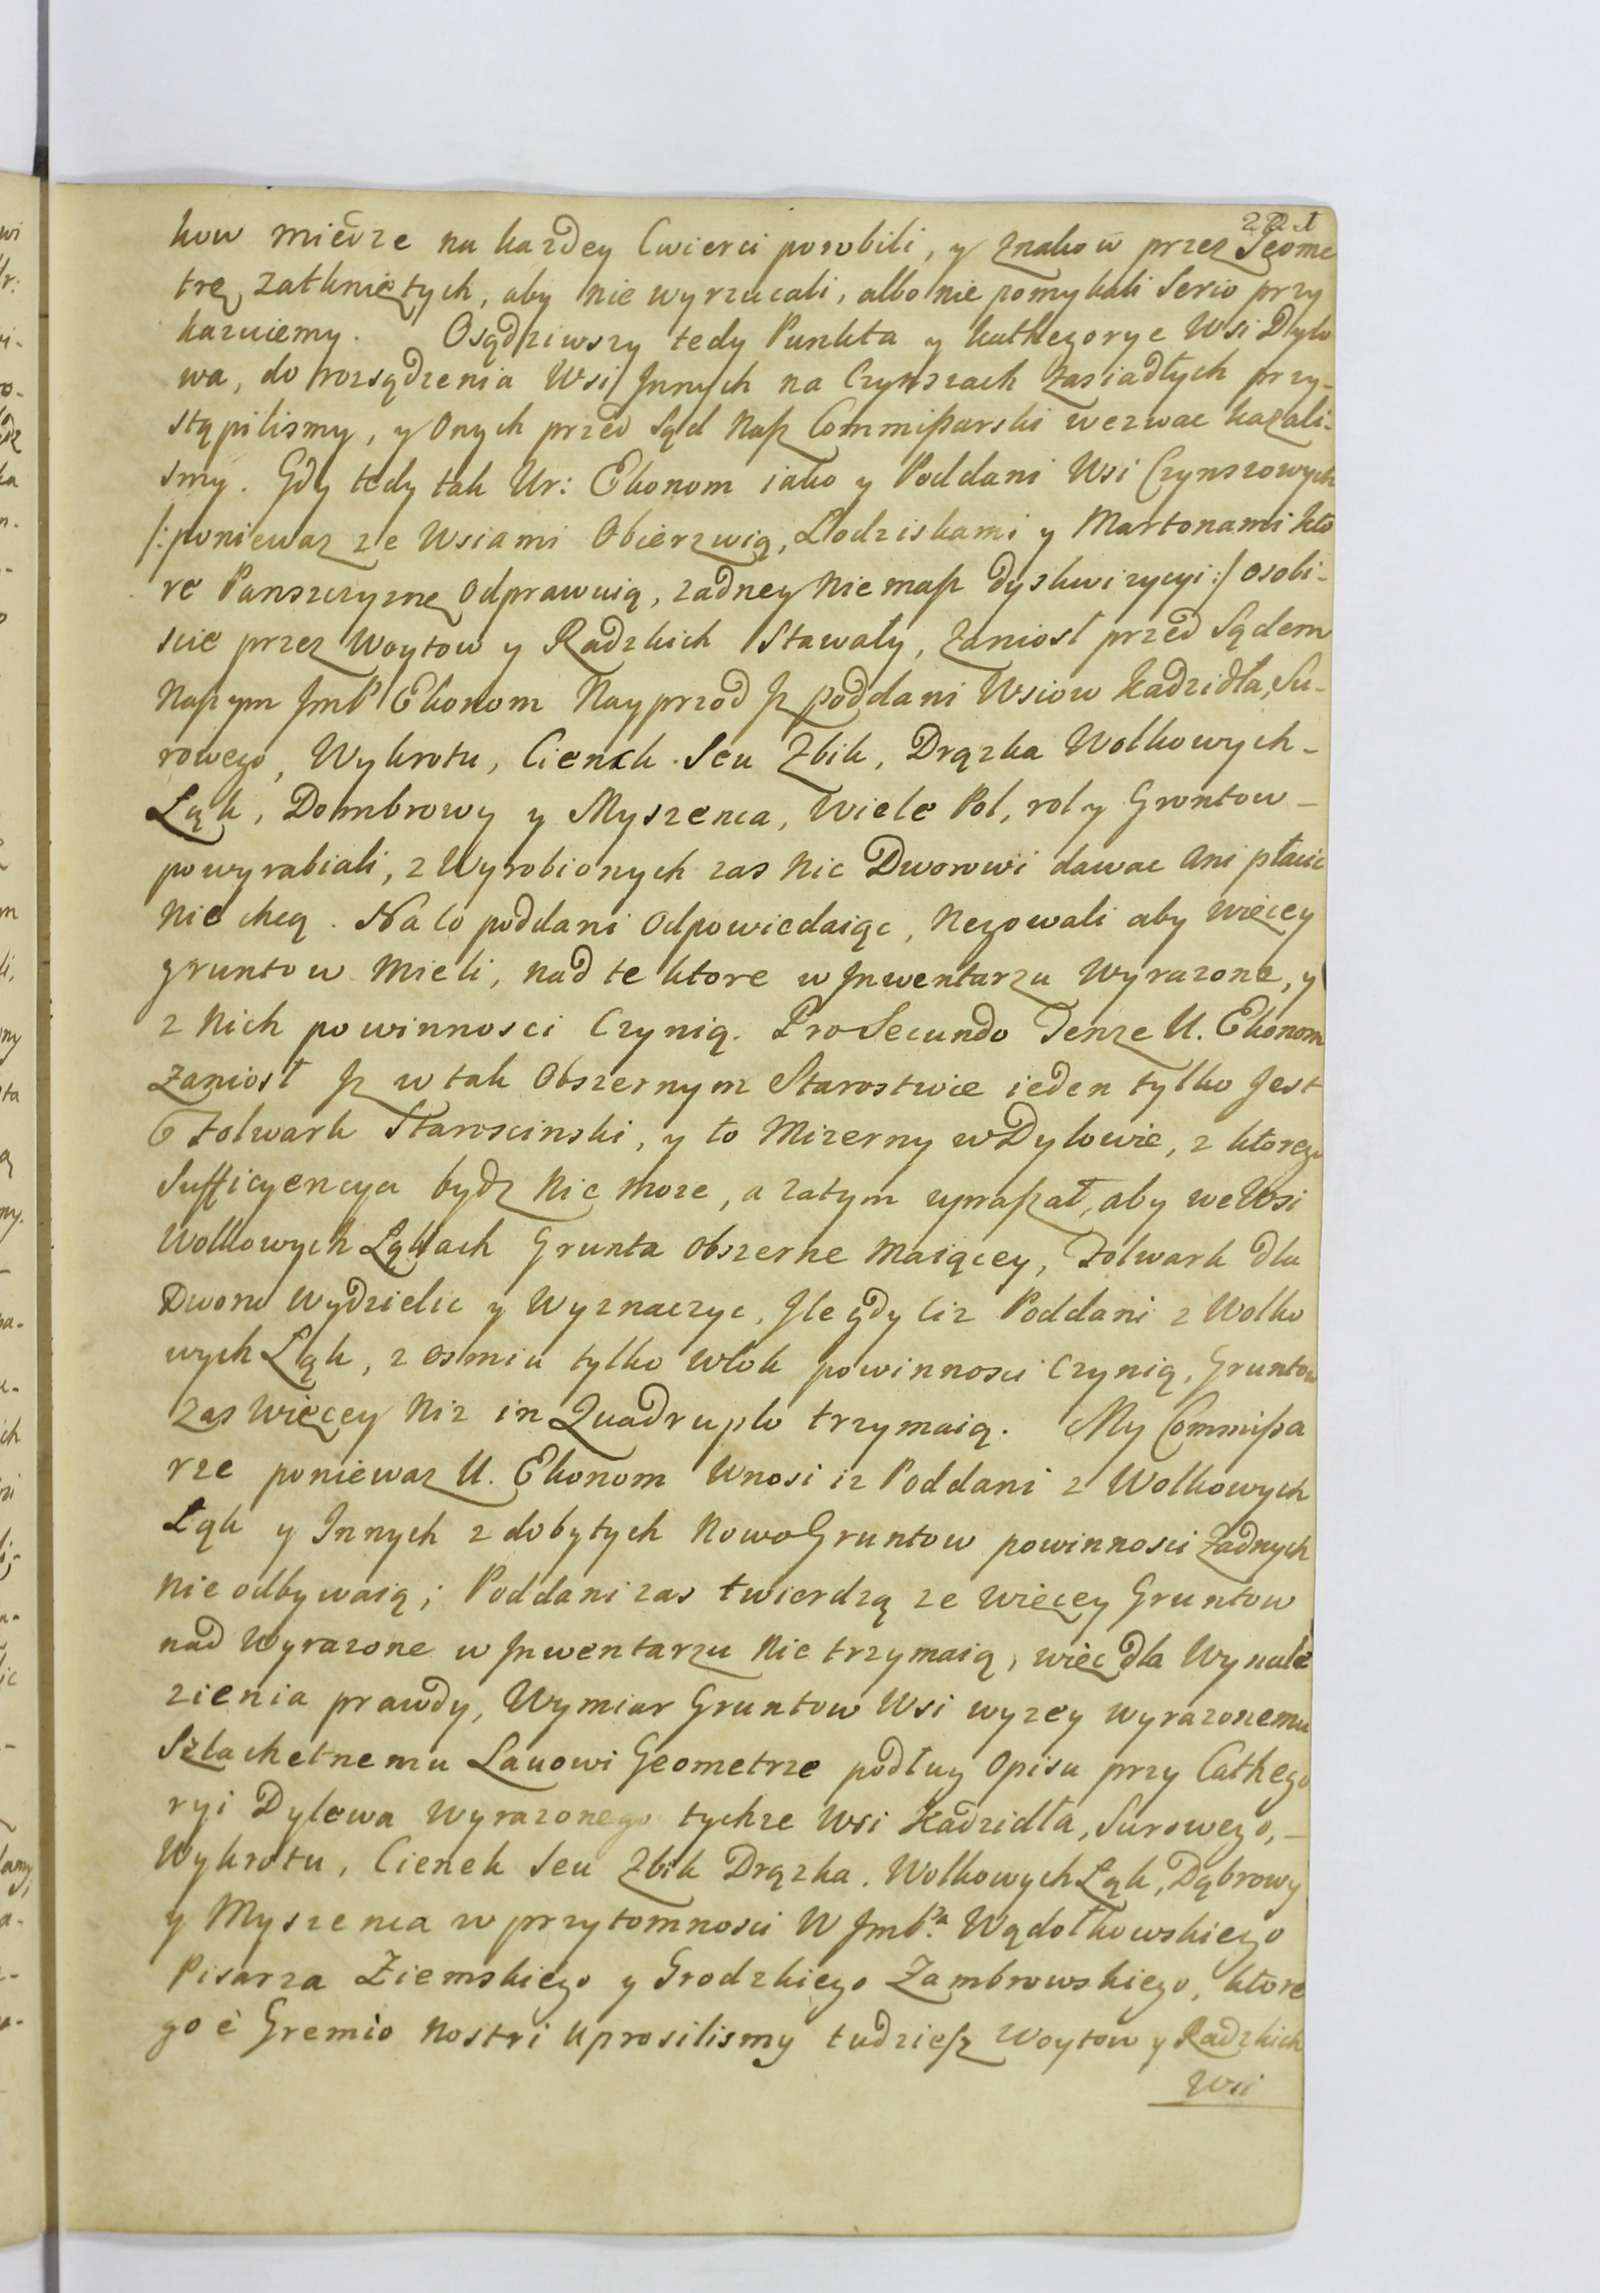 kow miedze na kazdey Cwierci porobili, y znakow przez Geome
trę zatknię tych, aby nie wyrzucali, albo nie pomykali Serio przy
kazuiemy. Osądziwszy tedy Punkta y kathegorye Wsi Dylo
wa, do rozsądzenia Wsi Jnnych na Czynszach Zasiadłych przy-
stąpilismy, y Onych przed Sąd Nasz Commißarski wezwac kazali-
smy. Gdy tedy tak Ur: Ekonom iako y Poddani Wsi Czynszowych
/:poniewaz ze Wsiami Obierzwią, Łodziskami y Martonami kto
re Panszczyznę Odprawuią, zadney Niemasz dyskwizycyi:/ osobi-
scie przez Woytow y Radzkich Stawały, Zaniosł przed Sądem
Naszym JmP Ekonom Nayprzod Jz poddani Wsiow Kadzidła, Su-
rowego, Wykrotu, Cienck. Seu Zbik, Drązka Wolkowych-
Łąk, Dombrowy y Myszenca, Wiele Pol, rol y Grontow-
powyrabiali, z Wyrobionych zas Nic Dworowi dawac Ani płacic
Nie chcą. Na to poddani Odpowiedaiąc, Negowali aby więcey
gruntow Mieli, nad te ktore w Jnwentarzu Wyrazone, y
z Nich powinnosci Czynią. Pro Secundo Tenze U. Ekonom
Zaniosł Jz w tak Obszernym Starostwie ieden tylko Jest
Folwark Staroscinski, y to Mizerny w Dylowie, z ktorego
Sufficyencya bydz Nie moze, a zatym upraszał, aby we Wsi
Wolkowych Łąkach Grunta Obszerne Maiącey, Folwark dla
Dworu Wydzielic y Wyznaczyc, Jle gdy ciz Poddani z Wolko
wych Łąk, z osmiu tylko włok powinnosci Czynią, Gruntow
Zas Więcey Niz in Quadruplo trzymaią. My Commißa
rze poniewaz U. Ekonom Wnosi iz Poddani z Wolkowych
Łąk y Innych z dobytych Nowo Gruntow powinnosci Zadnych
Nie odbywaią; Poddani zas twierdzą ze Więcey Gruntow
nad Wyrazone w Jnwentarzu Nie trzymaią, więc dla Wynale
zienia prawdy, Wymiar Gruntow Wsi wyzey wyrazonemu
Szlachetnemu Lauowi Geometrze podług Opisu przy Cathego
ryi Dylewa Wyrazonego tychze Wsi Kadzidła, Surowego,-
Wykrotu, Cienek Seu Zbik Drązka, Wolkowych Łąk, Dąbrowy
y Myszenca w przytomnosci W JmPa. Wądołkowskiego
Pisarza Ziemskiego y Grodzkiego Zambrowskiego, ktore
go è Gremio Nostri Uprosilismy tudziesz Woytow y Radzkich
Wsi